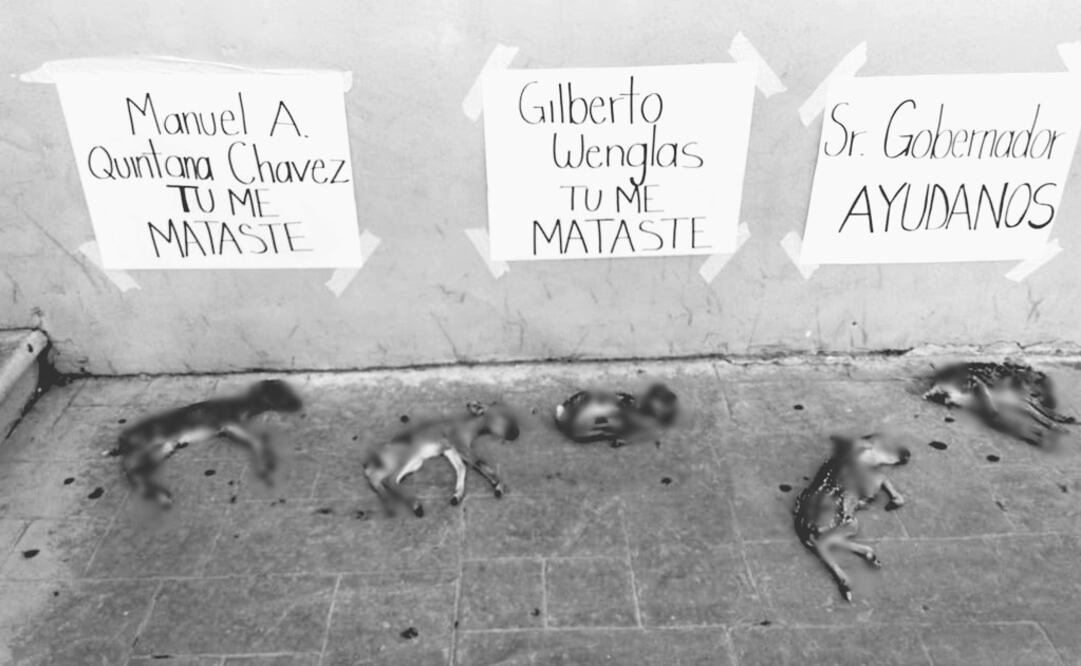 Manuel A.
Quintana Chavez
TU ME
MATASTE
Gilberto
Wenglas
TU ME
MATASTE
Sr. Gobernador
AYUDANOS